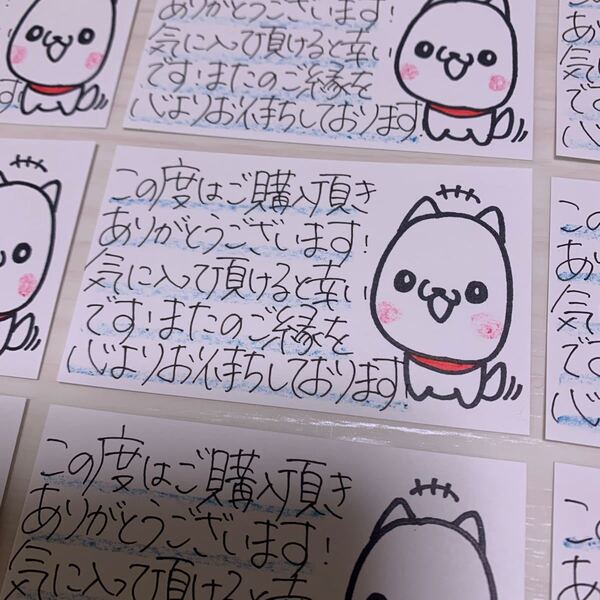 ありがとうございます!
気に入って頂けると幸い
です!またのご縁を
心よりお待ちしております
この度はご購入頂き
ありがとうございます!
気に入って頂けると幸い
です!またのご縁を
心よりお待ちしております
この度はご購入頂き
ありがとうございます!
気に入って頂けると幸